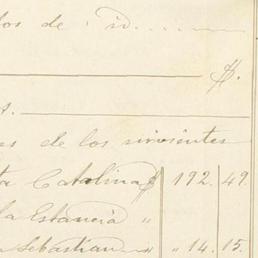 los de id.
$.
A.
s de los sirvientes
ta Catalina $ 192. 49.
la Estancia "
n Sebastian " " 14. 15.